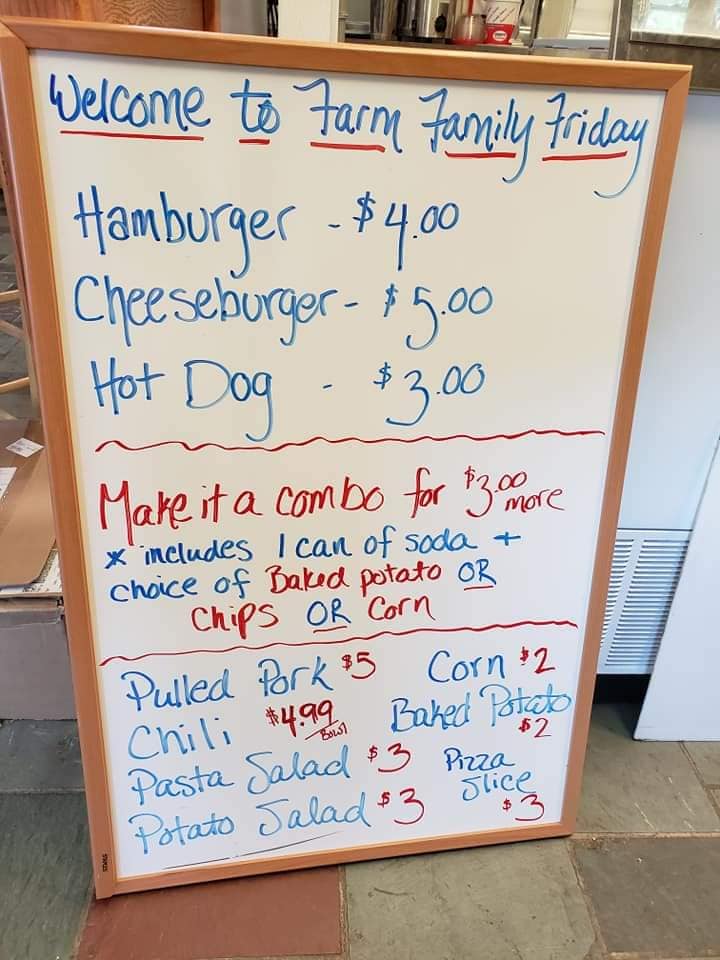 Welcome to Farm Family Friday
Hamburger - $4.00
Cheeseburger - $5.00
Hot Dog - $3.00
Make it a combo for $3.00 more
* includes 1 can of soda +
choice of Baked potato OR
Chips OR Corn
Pulled Pork $5
Chili $4.99 Bowl
Pasta Salad $3
Potato Salad $3
Corn $2
Baked Potato
$2
Pizza
Slice
$3